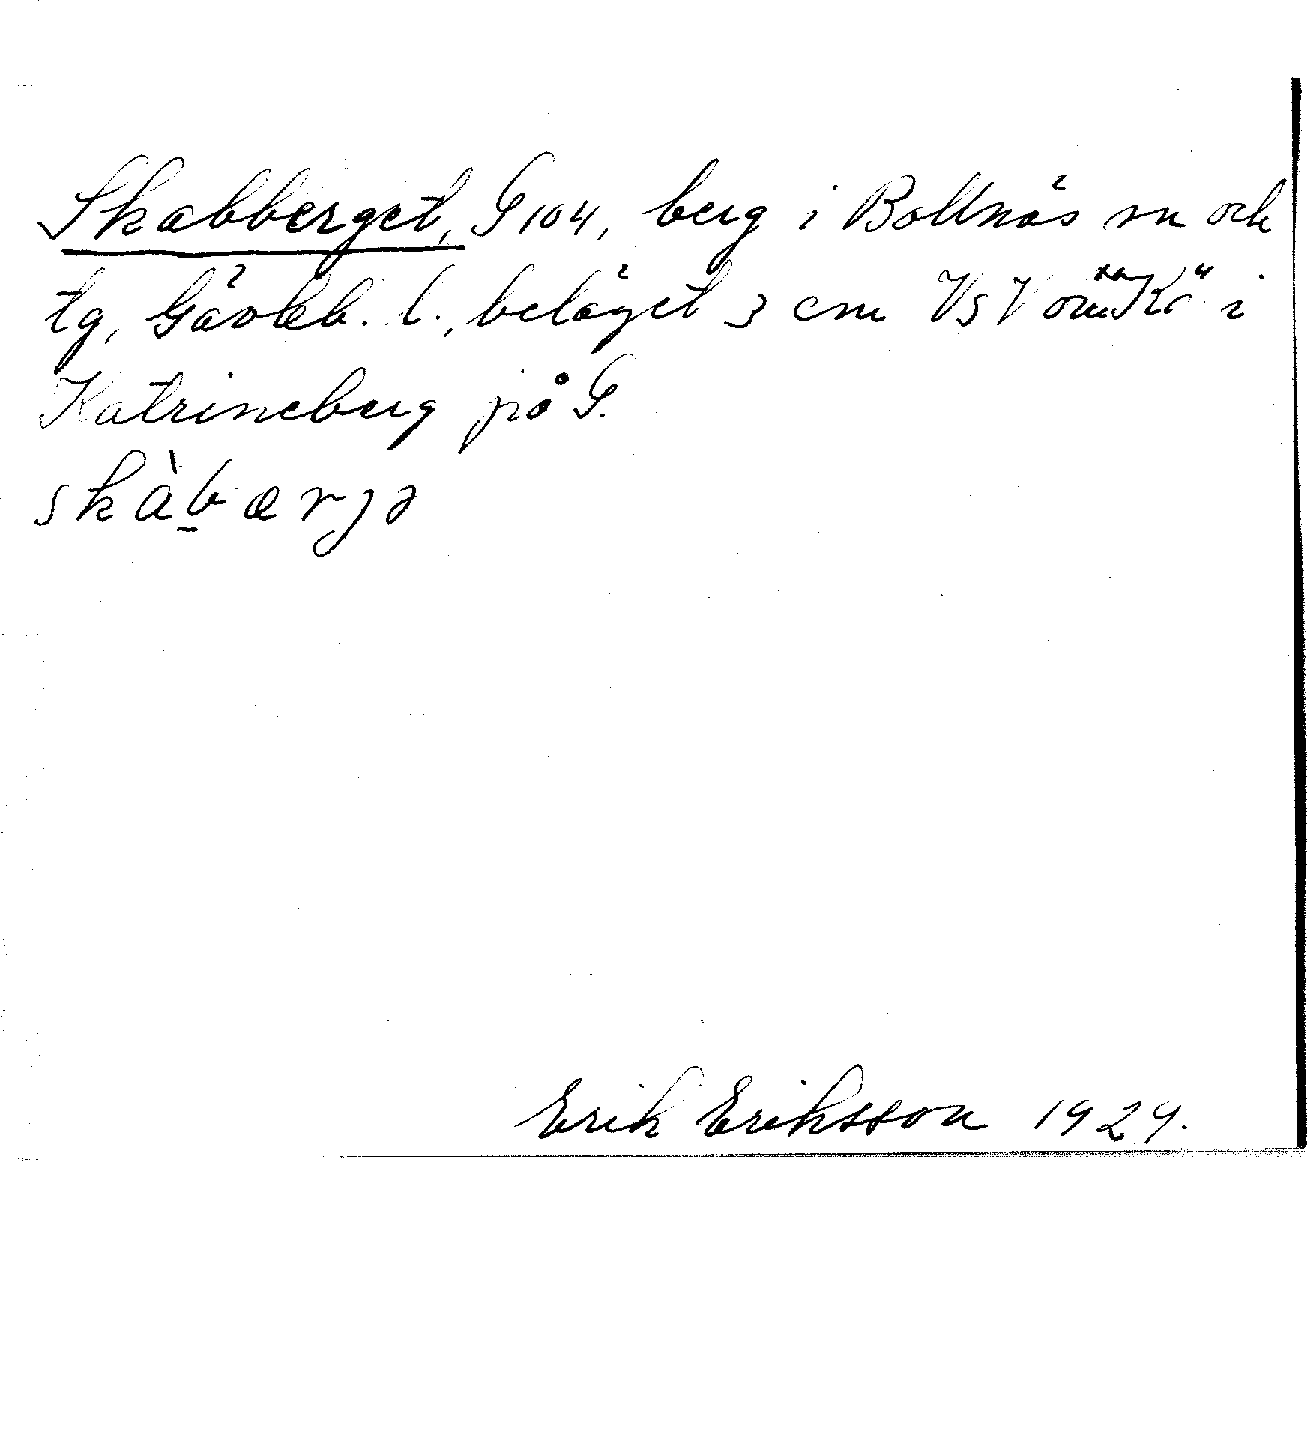 Skabberget, G 104, berg i Bollnäs sn och
tg, Gävleb. l., beläget 3 cm VSV om "Ka" i
Katrineberg på G.
skàb̠ærjə
Erik Eriksson 1929.